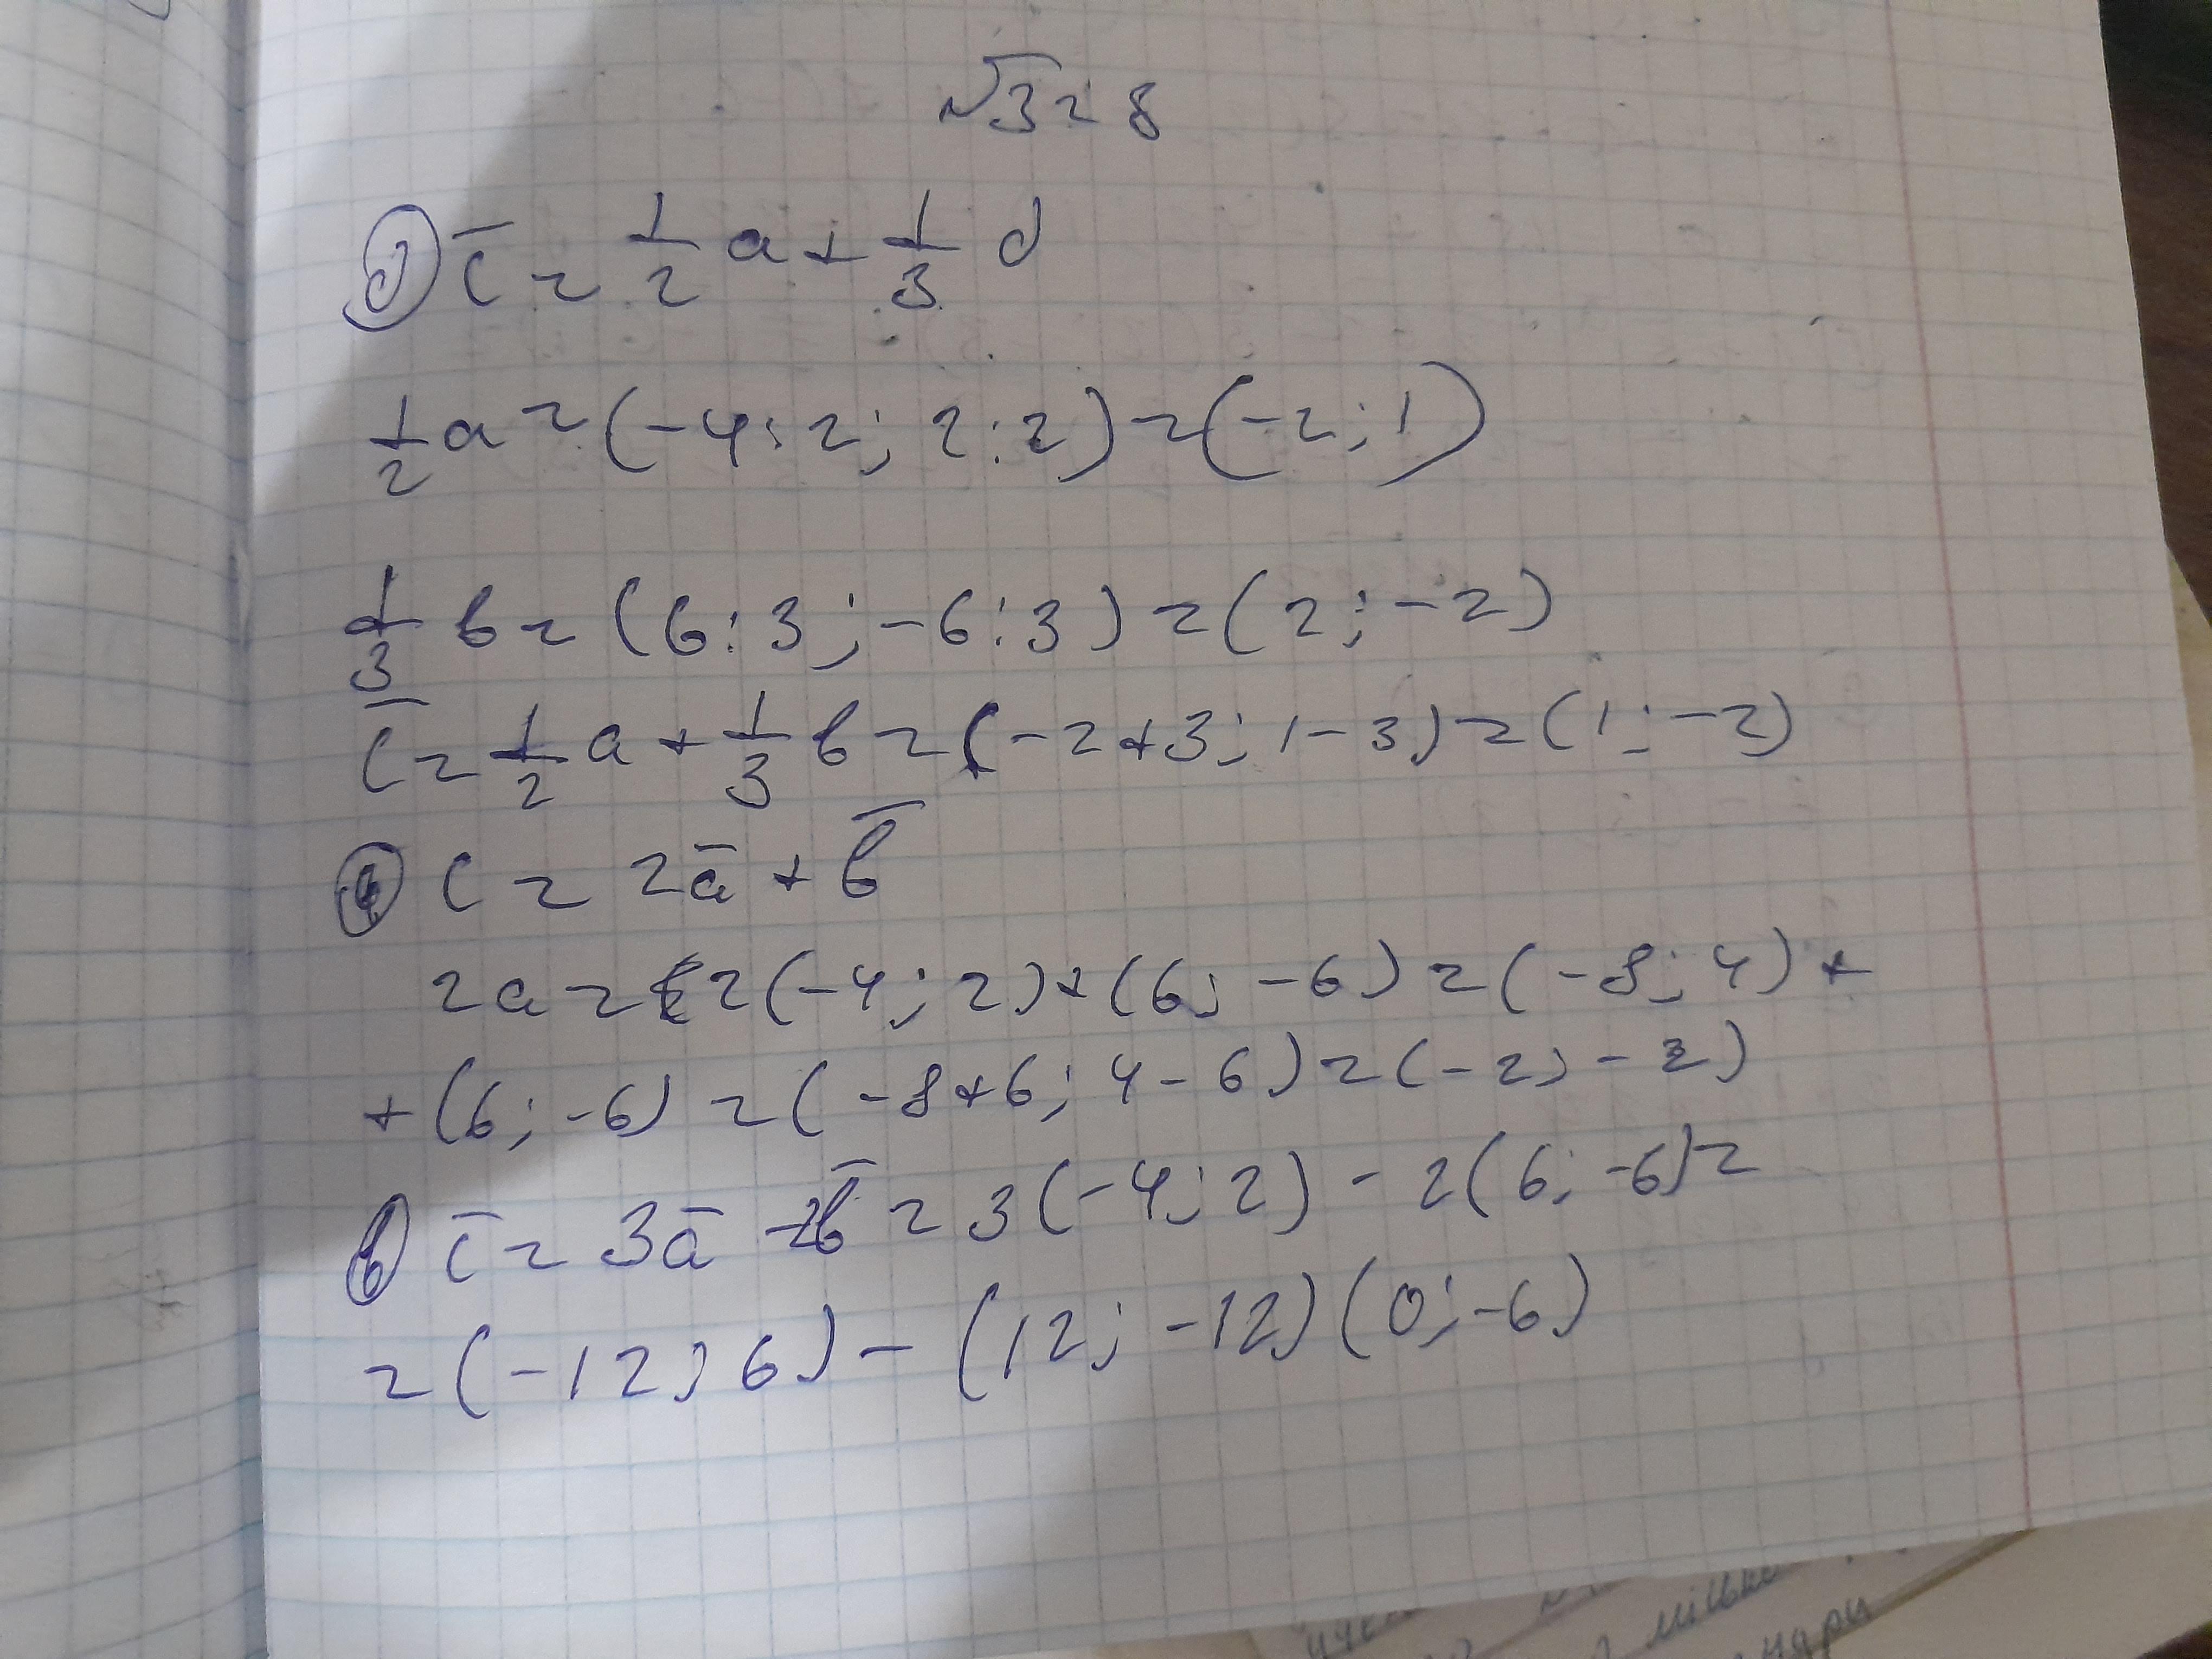 √328
1) c̄ = 1/2 a + 1/3 d
1/2 a = (-4:2; 2:2) = (-2; 1)
1/3 b = (6:3; -6:3) = (2; -2)
c̄ = 1/2 a + 1/3 b = (-2+3; 1-3) = (1; -2)
c = 2ā + b̄
2a = 2(-4; 2) + (6; -6) = (-8; 4) +
+ (6; -6) = (-8+6; 4-6) = (-2; -2)
b) c̄ = 3ā - 2b̄ = 3(-4; 2) - 2(6; -6) =
= (-12; 6) - (12; -12) (0; -6)
мільк